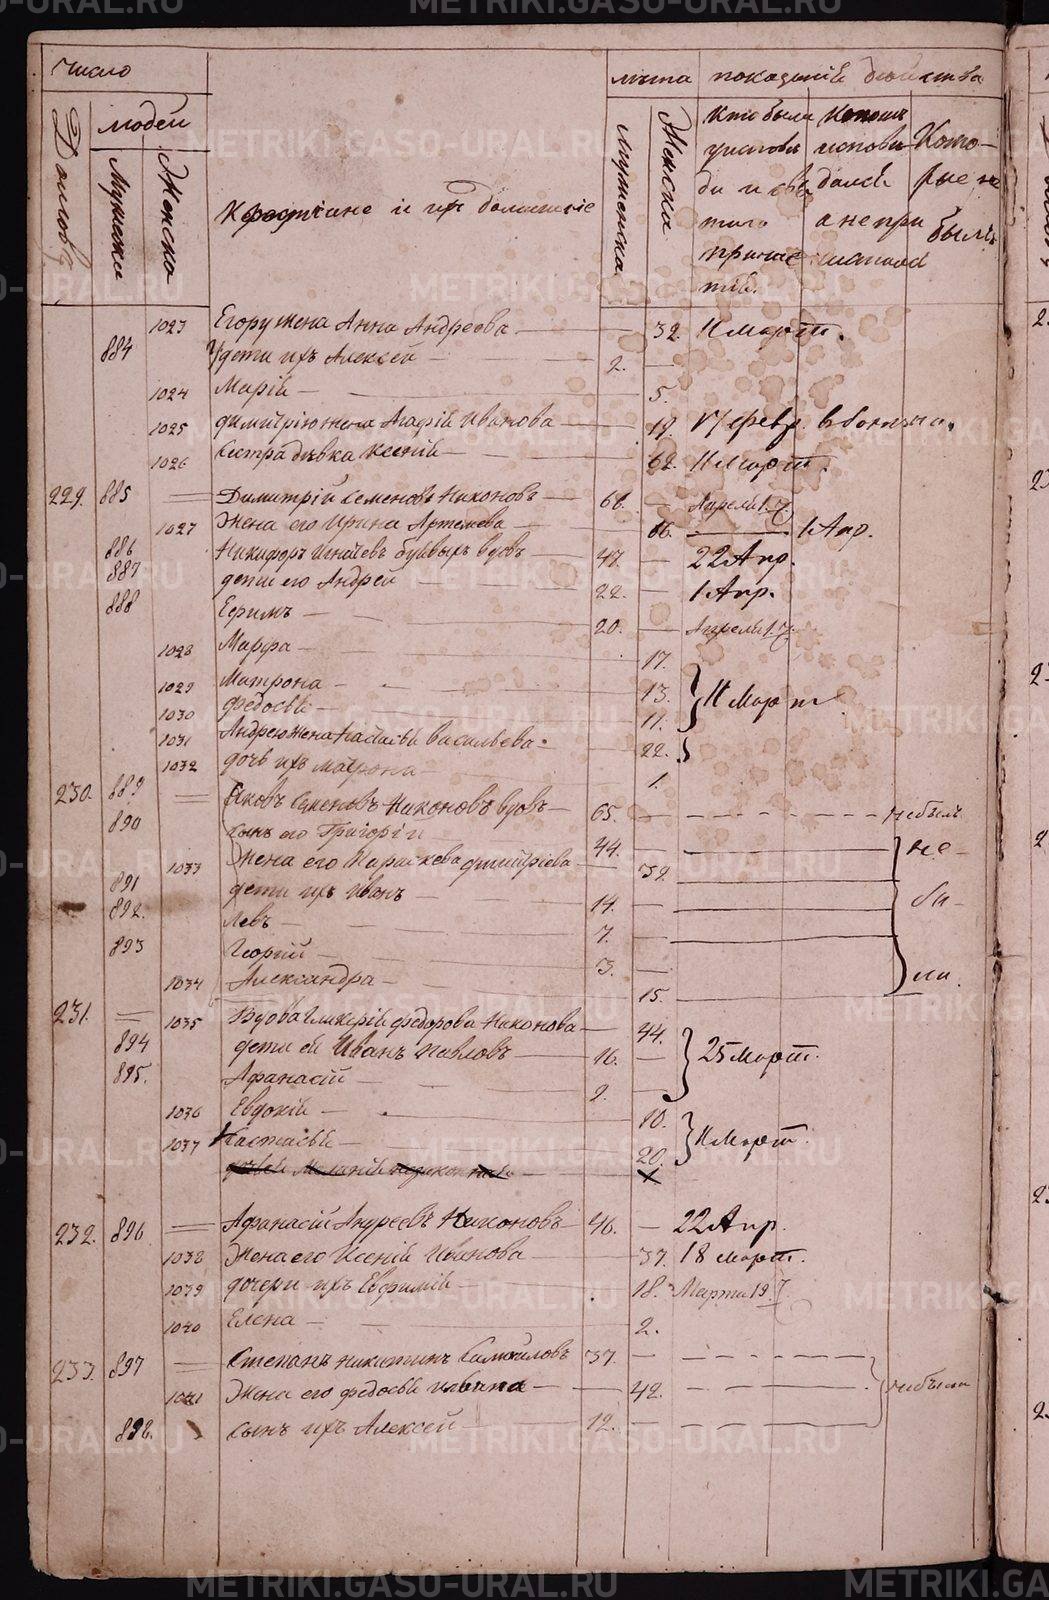 Число
лѣта показаніе бытства
Домовъ
людей
Мужска
Женска
Крестіане и ихъ домашніе
мужеска
Женска
кто былъ
у исповѣ
ди и свя
таго
прича
тія.
исповѣ
дался
а не при
Кото
рые не
были
1023 Егору жена Анна Андреева — 32. 11 Март.
884 дети ихъ Алексей — 2. —
1024 Марій — 5.
1025 димитрію жена Агафій Иванова — 19. 17 февр.
1026 Сестра дѣвка Ксеній — 62. 11 Март.
229. 885 Димитрій Семеновъ Никоновъ — 68. — Апреля 17.
1027 Жена его Ирина Артемева — 66. 1 Апр.
886 Никифоръ вдовъ — 47. — 22 Апр.
887 дети его Андрей — 22. — 1 Апр.
888 Ефимъ — 20. — Апреля 17.
1028 Марфа — 17.
1029 Матрона — 13. 11 Март
1030 Федосьѣ — 11.
1031 Андрею жена Настасьѣ Васильева — 22.
1032 дочь ихъ Матрона — 1.
230. 889 Яковъ Семеновъ Никоновъ вдовъ — 65. — небылъ
890 сынъ его Григорій — 44. — не-
1033 Жена его Параскева дмитріева — 39.
891 дети ихъ Иванъ — 14. — бы-
892. Левъ — 7. —
893 Георгій — 3. — ли.
1034 Александра — 15.
231. 1035 Вдова Гликерій Федорова Никонова — 44.
894 дети ей Иванъ Павловъ — 16. — 25 Март.
895. Афанасій — 2. —
1036 Евдокій — 10.
1037 Настасьѣ — 20. 11 Март.
232. 896 Афанасій Андреевъ Никоновъ — 46. — 22 Апр.
1038 Жена его Ксеній Иванова — 37. 18 март.
1039 дочери ихъ Евфимій — 18. Марта 19
1040 Елена — 2.
233. 897 Степанъ Никитинъ Самойловъ 37. —
1041 Жена его федосьѣ — 42. небыли
898. сынъ ихъ Алексей — 12. —
METRIKI.GASO-URAL.RU